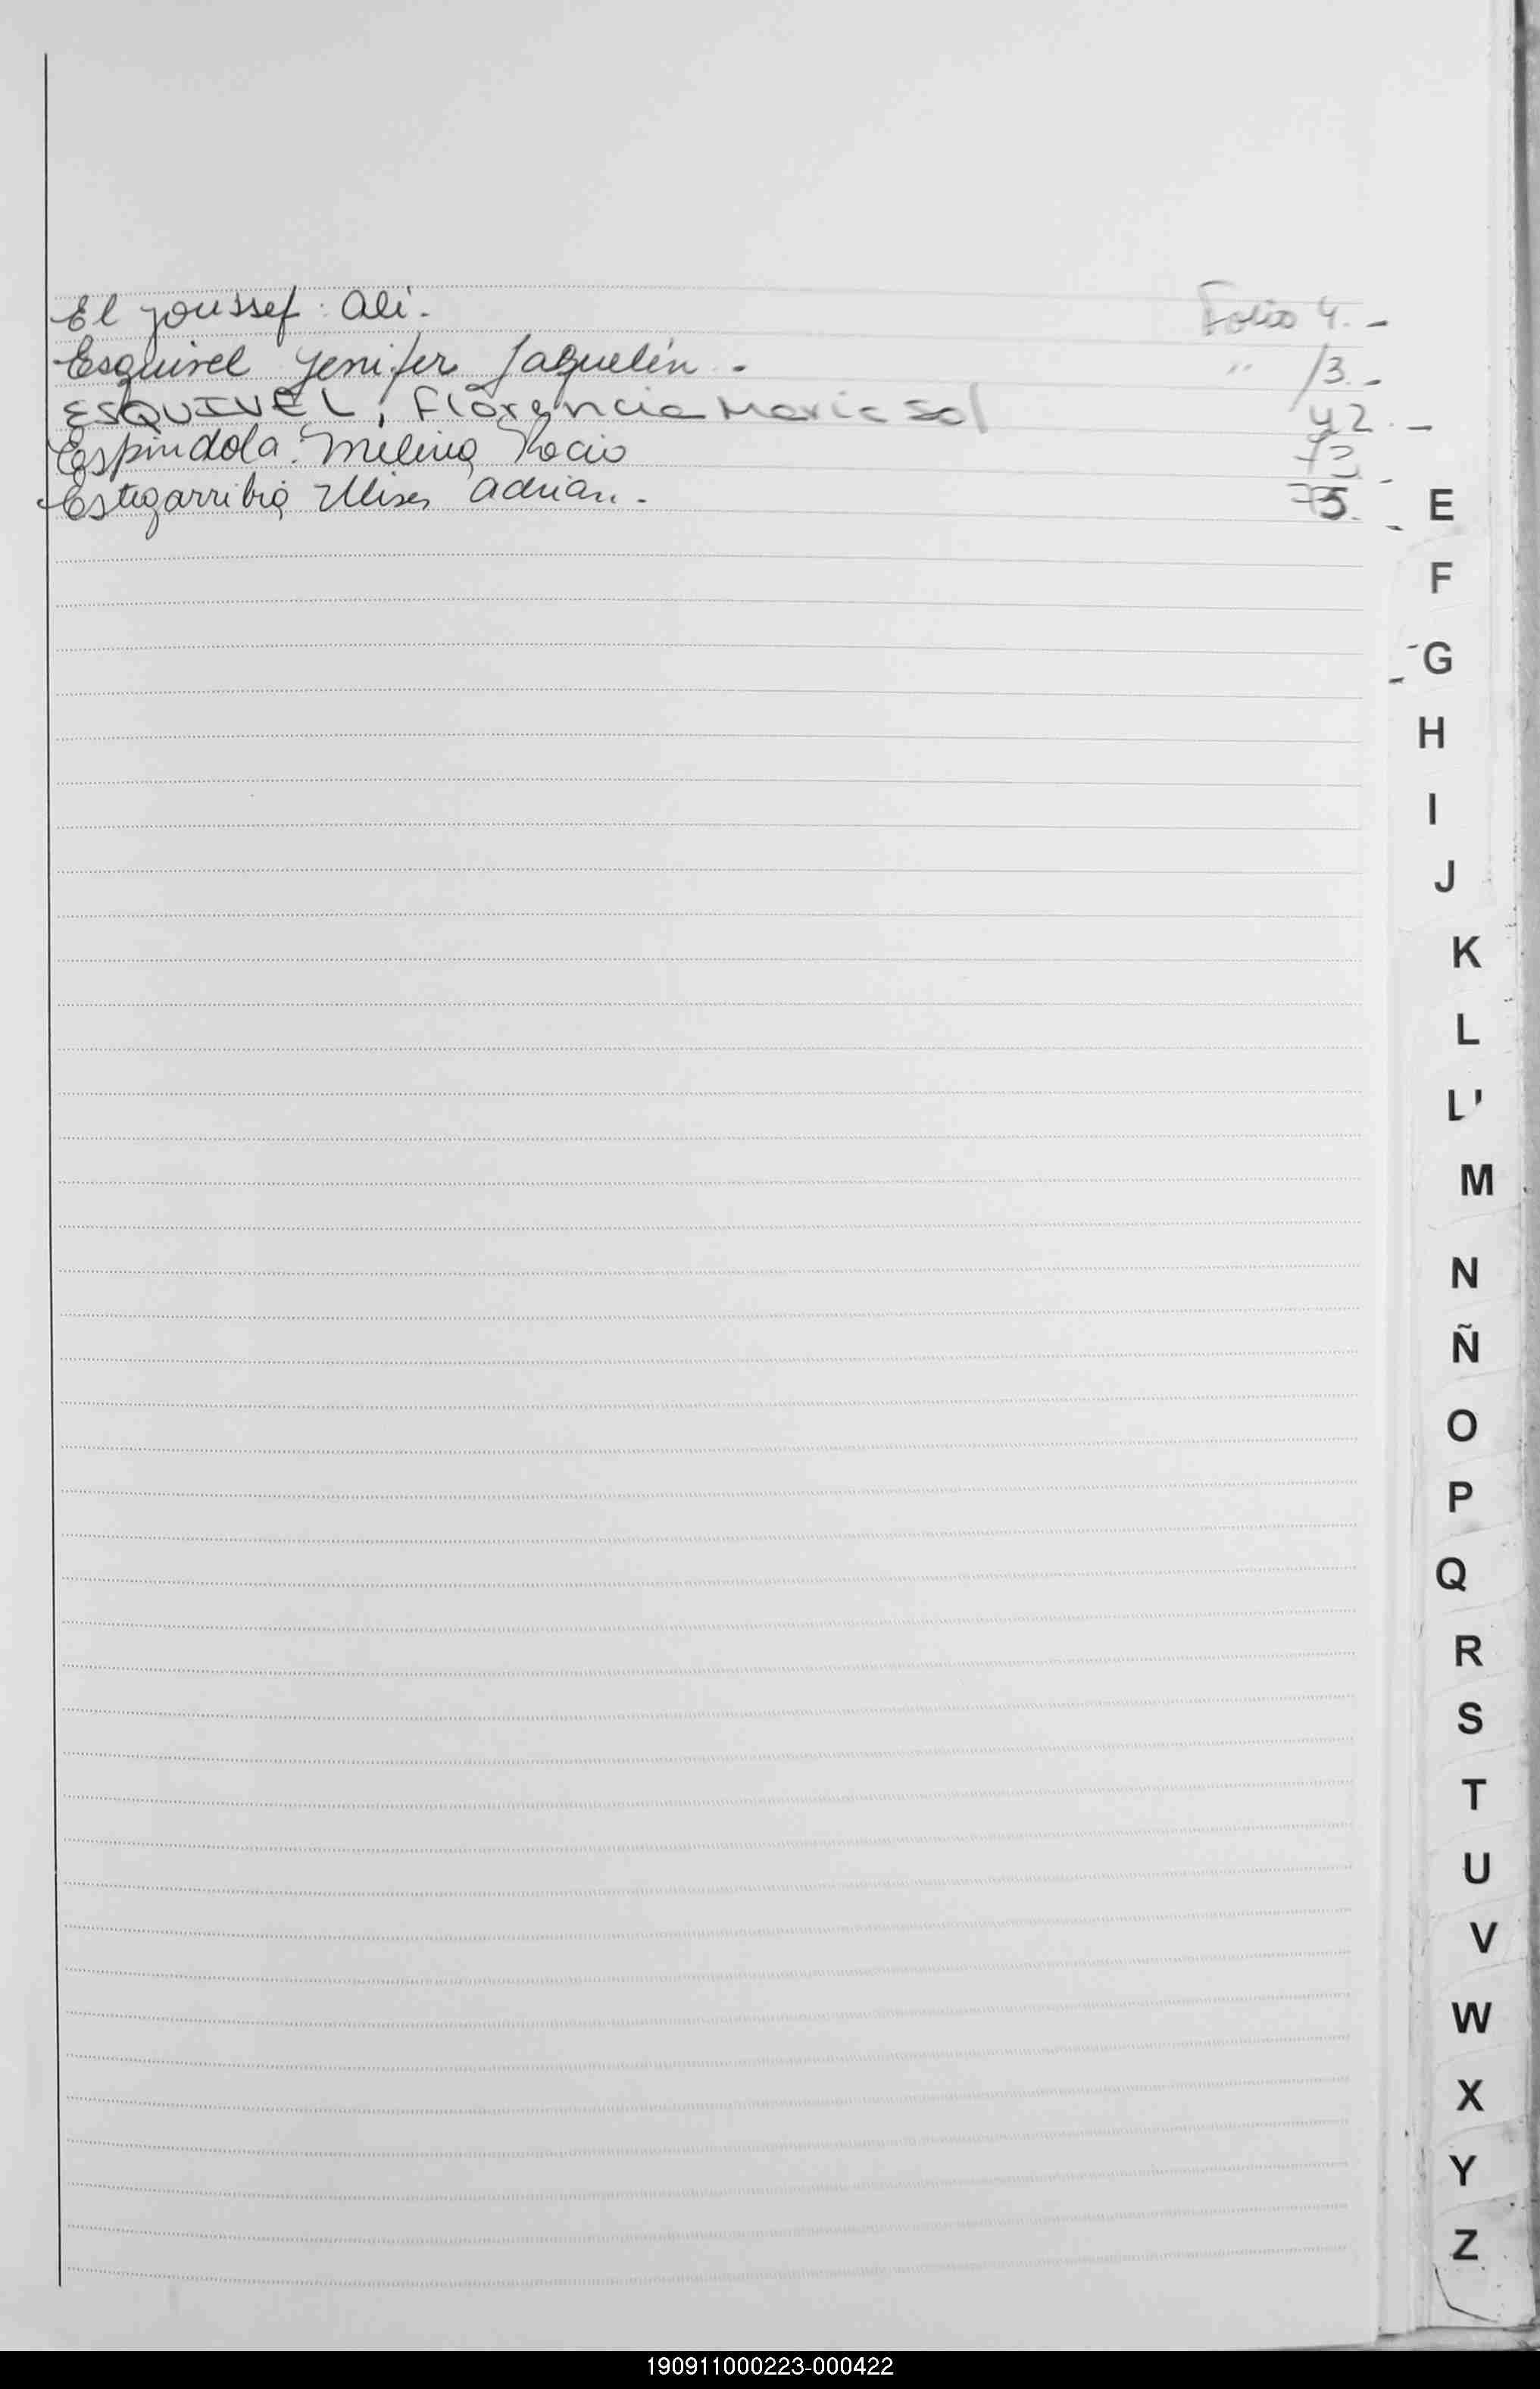 El Youssef : Ali. Folio 4. -
Esquivel Yenifer Jaquelin - " 13. -
ESQUIVEL, Florencia Maria Sol 42. -
Espindola. Milena Rocio 73. -
Estigarribia Ulises Adrian. - 75. -
E
F
G
H
I
J
K
L
L'
M
N
Ñ
O
P
Q
R
S
T
U
V
W
X
Y
Z
190911000223-000422